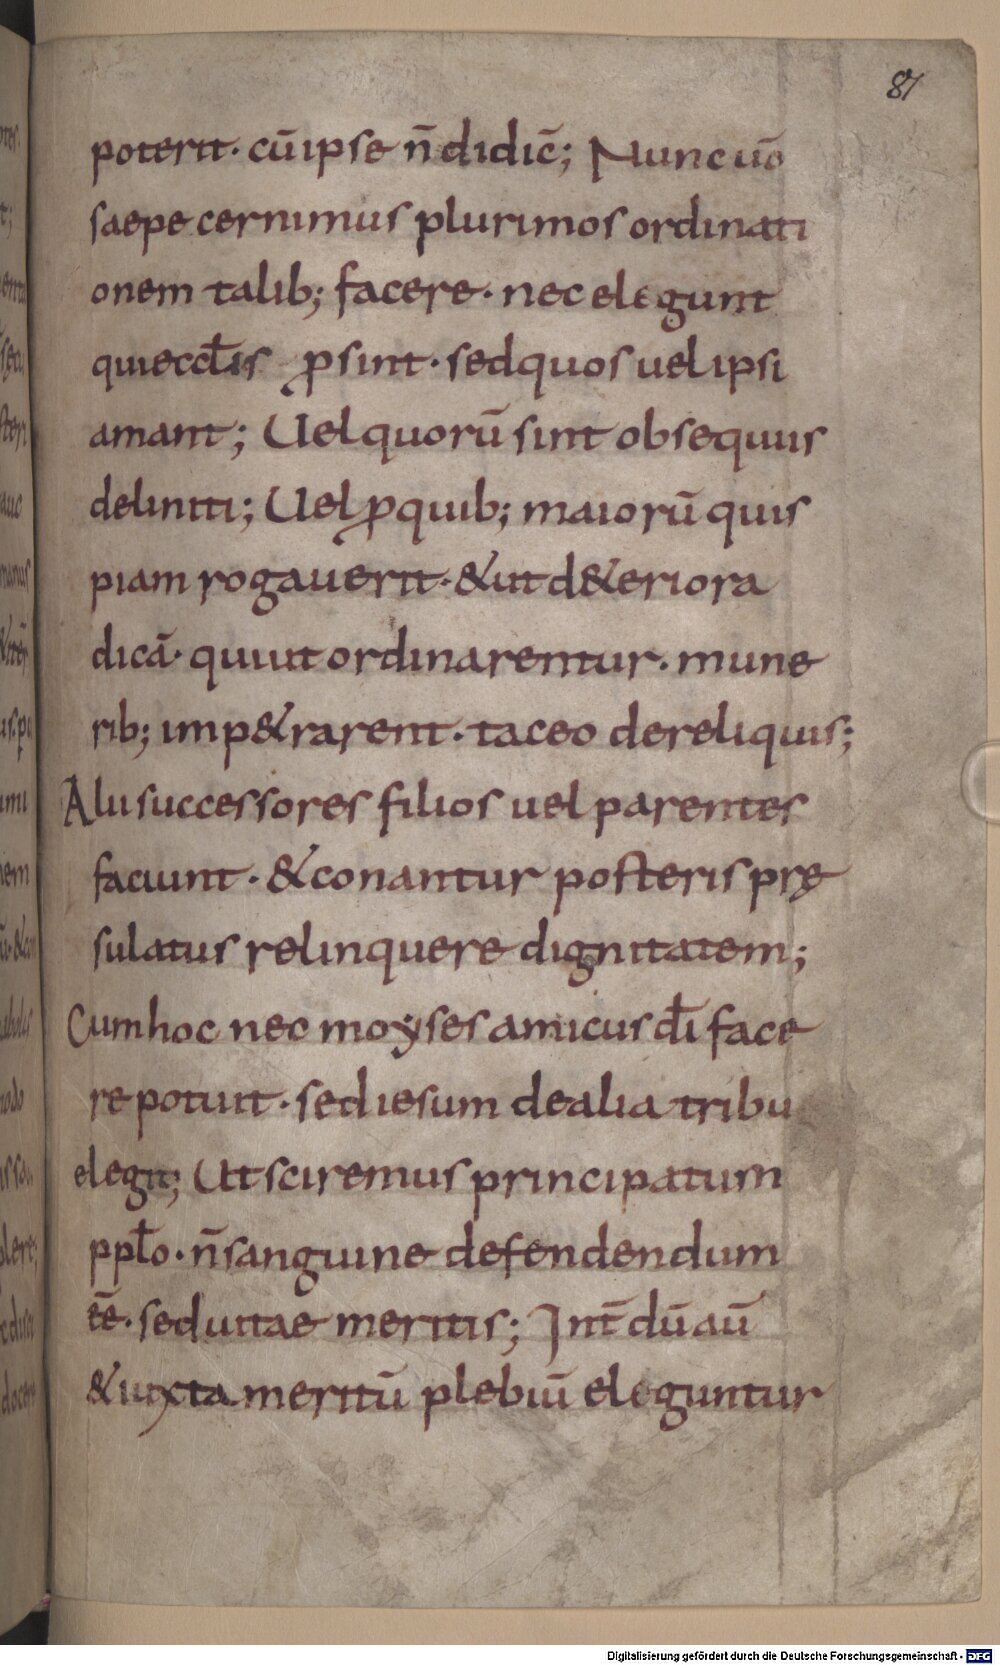 87
poterit· cū ipse n̄ didic̄; Nunc uō
saepe cernimus plurimos ordinati
onem talib; facere· nec elegunt
qui eccl̄is ꝓsint· sed quos uel ipsi
amant; Uel quorū sint obsequiis
deliniti; Uel ꝓ quib; maiorū quis
piam rogauerit· & ut d&eriora
dicā· qui ut ordinarentur· mune
rib; imp&rarent· taceo de reliquis;
Alii successores filios uel parentes
faciunt· & conantur posteris prę
sulatus relinquere dignitatem;
Cum hoc nec moyses amicus dī face
re potuit· sed iesum de alia tribu
elegit; Ut sciremus principatum
ppl̄o· n̄ sanguine defendendum
ēē· sed uitae meritis; Int̄dū aū
& iuxta meritū plebiū eleguntur
Digitalisierung gefördert durch die Deutsche Forschungsgemeinschaft - DFG